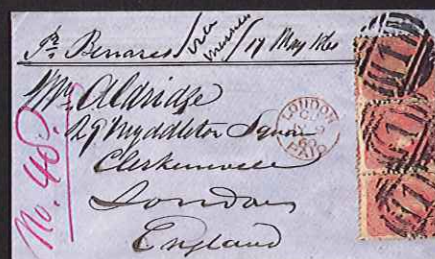 Pr Benares / via Marseilles / 17 May 1860
Mr Aldridge
29 Myddleton Square
Clerkenwell
London
England
No. 48.
LONDON
60
PAID
1
1
1